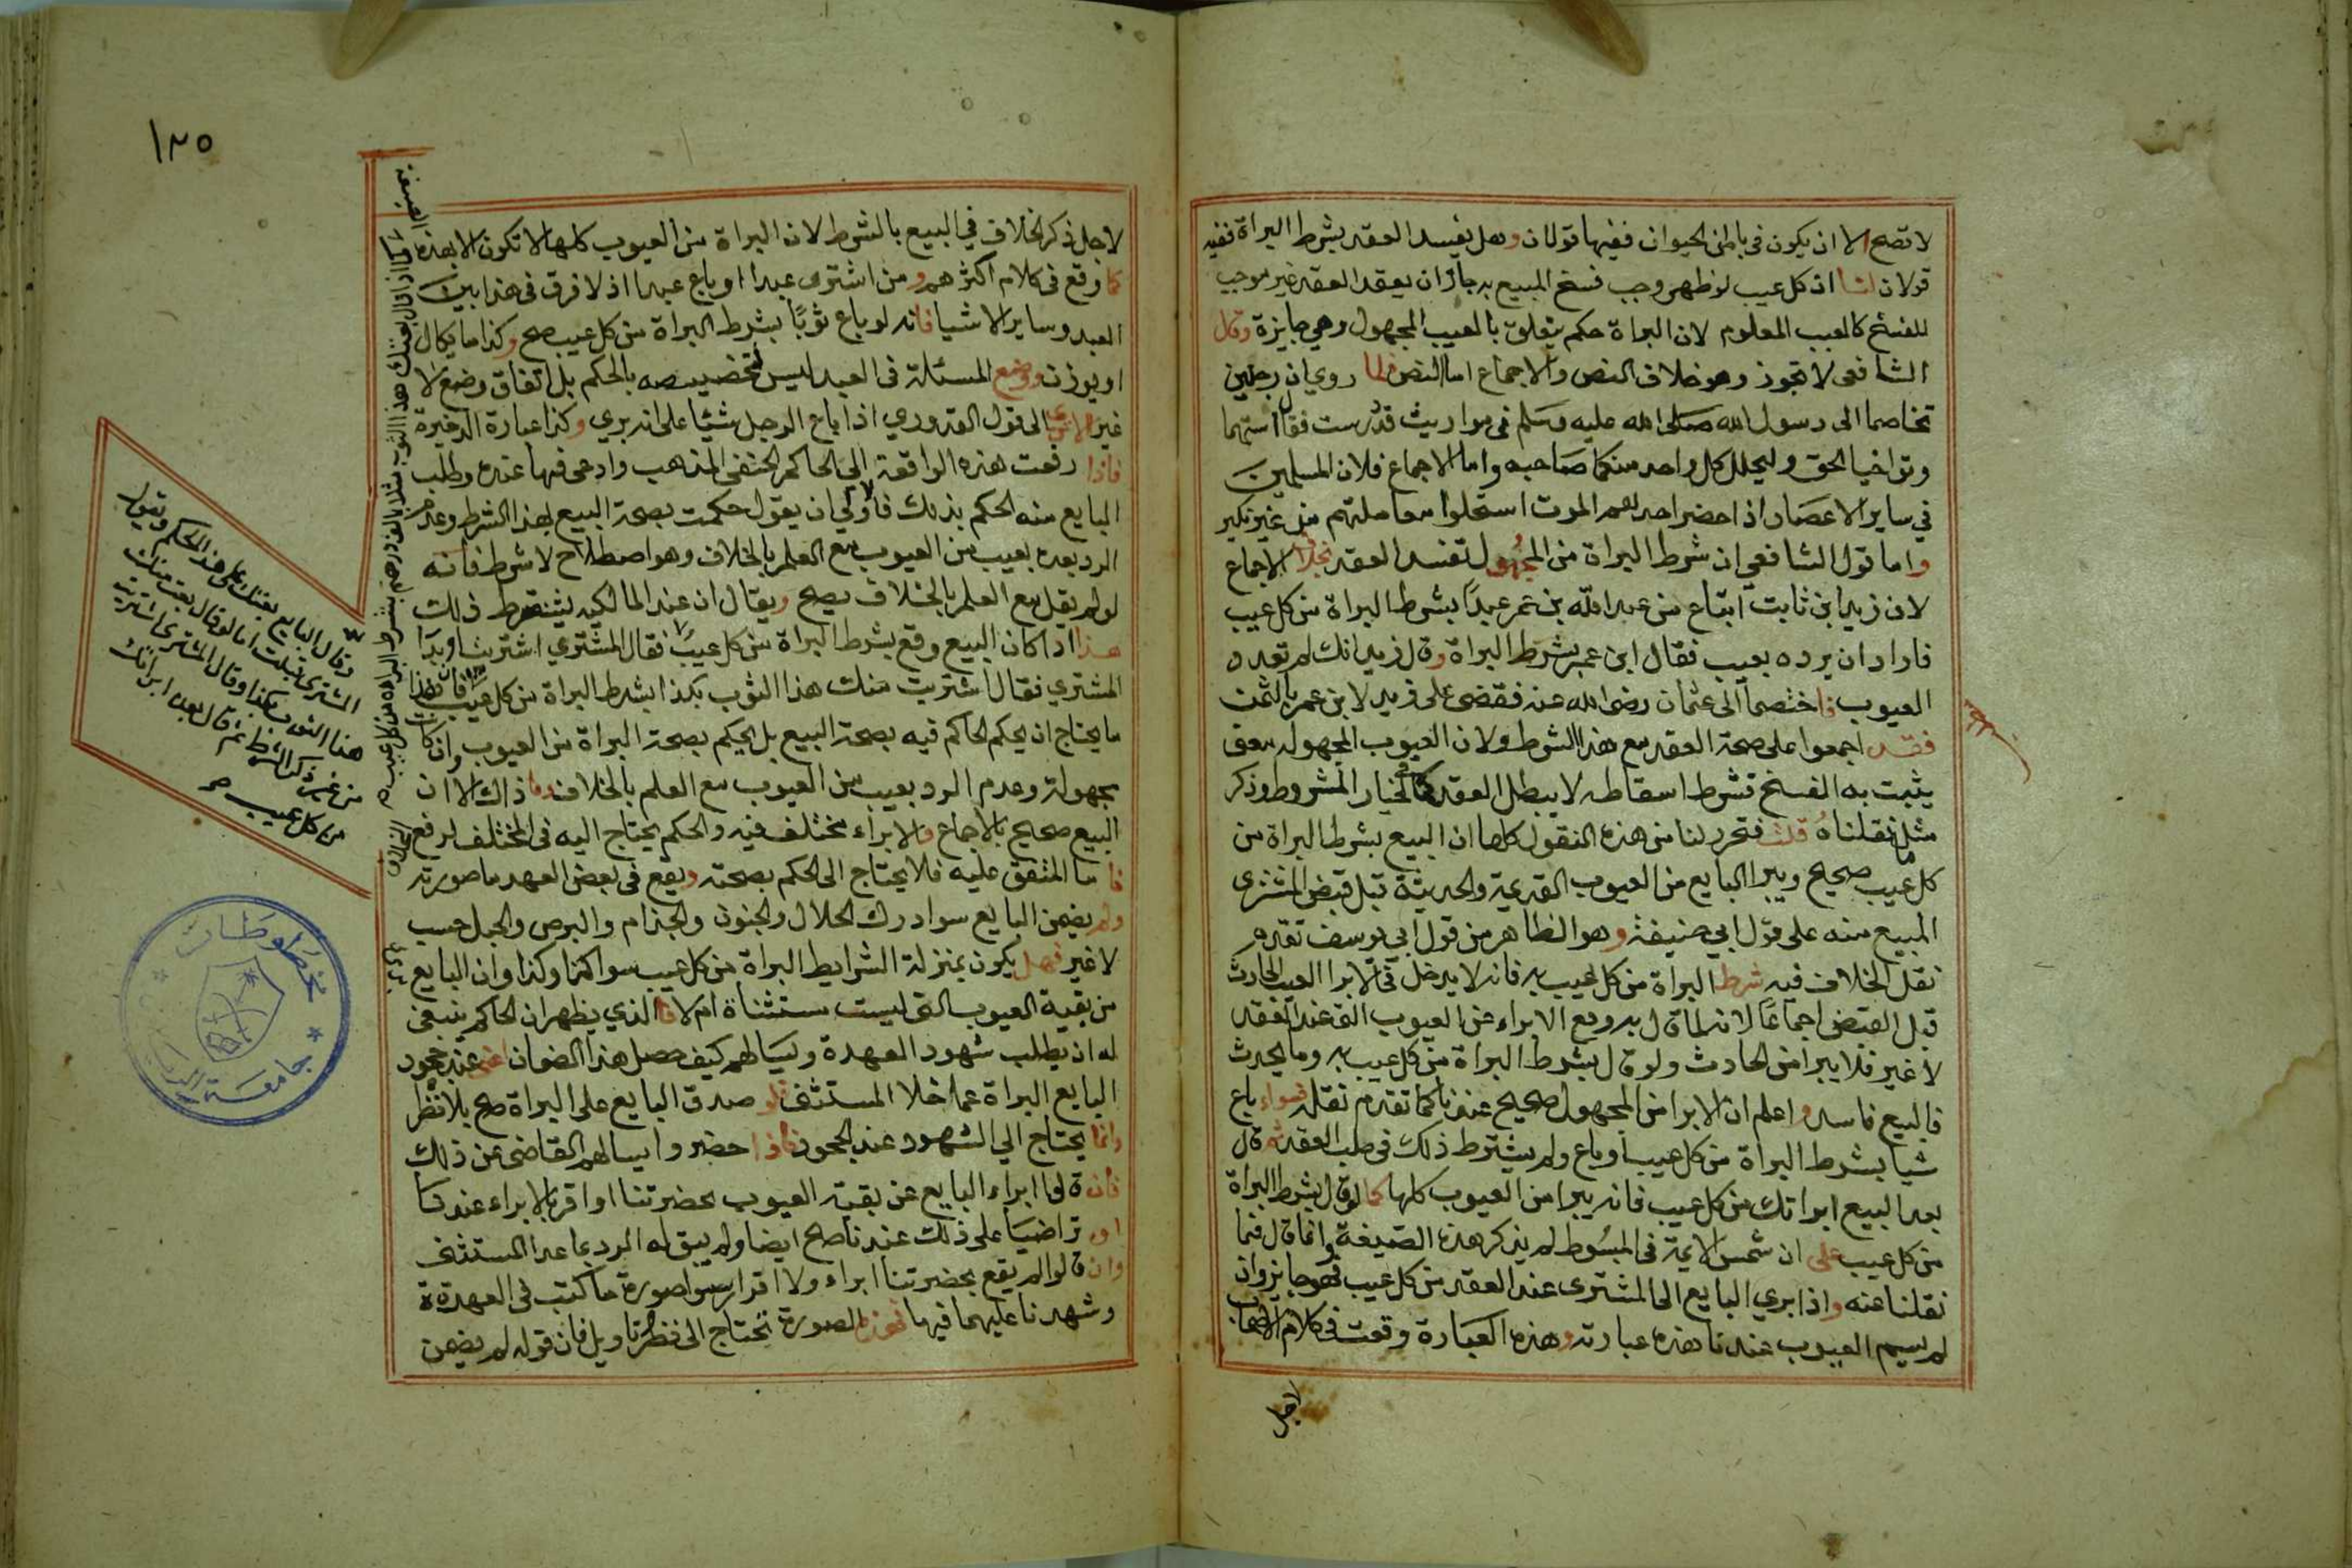 لا تصح الا ان يكون في باطن الحيوان ففيها قولان وهل يفسد العقد بشرط البراة ففيه
قولان لنا اذ كل عيب لو ظهر وجب فسخ المبيع به جاز ان يعقد العقد غير موجب
للفسخ كالعيب المعلوم لان البراة حكم يتعلق بالعيب المجهول وهي جايزة وقال
الشافعى لا تجوز وهو خلاف النص والاجماع اما النص فلما روي ان رجلين
تخاصما الى رسول الله صلى الله عليه وسلم في مواريث قد درست فقال استهما
وتواخيا الحق وليحلل كل واحد منكما صاحبه واما الاجماع فلان المسلمين
في ساير الاعصار اذا حضر احدهم الموت استحلوا معاملتهم من غير نكير
واما قول الشافعي ان شرط البراة من المجهول تفسد العقد بخلاف الاجماع
لان زيد ابن ثابت ابتاع من عبد الله بن عمر عبداً بشرط البراة من كل عيب
فاراد ان يرده بعيب فقال ابن عمر بشرط البراة وقال زيد انك لم تعدد
العيوب فاختصما الى عثمان رضى الله عنه فقضى على زيد لابن عمر بالثمن
فقد اجمعوا على صحة العقد مع هذا الشرط ولان العيوب المجهولة معنى
يثبت به الفسخ فشرط اسقاطه لا يبطل العقد كما في الخيار المشروط وذكر
مثل ما نقلناه قلت فتحرر لنا من هذه النقول كلها ان البيع بشرط البراة من
كل عيب صحيح ويبرا البايع من العيوب القديمة والحديثة قبل قبض المشترى
المبيع منه على قول ابي حنيفة وهو الظاهر من قول ابي يوسف تقدم
نقل الخلاف فيه شرط البراة من كل عيب به فانه لا يدخل في الابرا العيب الحادث
قبل القبض اجماعاً لانه لما قال به وقع الابراء عن العيوب التى عند العقد
لا غير فلا يبرا من الحادث ولو قال بشرط البراة من كل عيب به وما يحدث
فالبيع فاسد واعلم ان الابرا من المجهول صحيح عندنا كما تقدم نقله فسواء باع
شيا بشرط البراة من كل عيب او باع ولم يشترط ذلك في صلب العقد ثم قال
بعد البيع ابراتك من كل عيب فانه يبرا من العيوب كلها كما لو قال بشرط البراة
من كل عيب على ان شمس الايمة في المبسوط لم يذكر هذه الصيغة وانما قال فيما
نقلنا عنه واذا بري البايع الى المشترى عند العقد من كل عيب فهو جايز وان
لم يسم العيوب عندنا هذه عبارته وهذه العبارة وقعت في كلام الاصحاب
لاجل
١٢٥
لاجل ذكر الخلاف في البيع بالشرط لان البراة من العيوب كلها لا تكون الا بهذه
الصيغة
كما وقع في كلام اكثرهم ومن اشترى عبدا او باع عبدا اذ لا فرق في هذا بين
العبد وساير الاشيا فانه لو باع ثوبًا بشرط البراة من كل عيب صح وكذا ما يكال
او يوزن ووضع المسئلة في العبد ليس لتخصيصه بالحكم بل اتفاق وضع لا
غير الا ترى الى قول القدوري اذا باع الرجل شيئا على انه بري وكذا عبارة الذخيرة
فاذا رفعت هذه الواقعة الى الحاكم الحنفى المذهب وادعى فيها عنده وطلب
البايع منه الحكم بذلك فاولي ان يقول حكمت بصحة البيع بهذا الشرط وعدم
الرد بعده بعيب من العيوب مع العلم بالخلاف وهو اصطلاح لا شرط فانه
لو لم يقل مع العلم بالخلاف يصح ويقال ان عند المالكيه يشترط ذلك
هذا اذا كان البيع وقع بشرط البراة من كل عيب فقال المشتري اشتريت او بدا
المشتري فقال اشتريت منك هذا الثوب بكذا بشرط البراة من كل عيب فان هذا
ما يحتاج ان يحكم الحاكم فيه بصحة البيع بل يحكم بصحة البراة من العيوب وان كانت
مجهولة وعدم الرد بعيب من العيوب مع العلم بالخلاف وما ذاك الا ان
البيع صحيح بالاجماع والابراء مختلف فيه والحكم يحتاج اليه في المختلف لرفع
الخلاف
فاما المتفق عليه فلا يحتاج الى الحكم بصحته ويقع في بعض العهد ما صورته
ولم يضمن البايع سوا درك الحلال والجنون والجذام والبرص والحبل حسب
لا غير فهل يكون بمنزلة الشرايط البراة من كل عيب سوا كذا وكذا وان البايع
بري
من بقية العيوب التى ليست مستثناة ام لا فالذي يظهر ان الحاكم ينبغى
له ان يطلب شهود العهدة ويسالهم كيف حصل هذا الضمان اعنى عند جحود
البايع البراة عما خلا المستثنى فلو صدق البايع على البراة صح بلا نظر
وانما يحتاج الي الشهود عند الجحود فاذا حضروا يسالهم القاضى عن ذلك
فان قالوا ابراء البايع عن بقية العيوب بحضرتنا او اقر بالابراء عندنا
او تراضيا على ذلك عندنا صح ايضا ولم يبق له الرد بما عدا المستثنى
وان قالوا لم يقع بحضرتنا ابراء ولا اقرار سوا صورة ما كتب في العهدة
وشهدنا عليهما فيها فهذه الصورة تحتاج الى نظر وتاويل فان قوله لم يضمن
اما اذا قال بعتك هذا الثوب مثلا بالف درهم بشرط البراة من كل عيب
وقال البايع بعتك على هذا الحكم ويقول
المشترى قبلت اما لو قال بعت منك
هذا الثوب بكذا وقال المشترى اشتريت
من غير ذكر الشرط ثم قال بعده ابراتك
من كل عيب صح
مخطوطات
جامعة الرياض